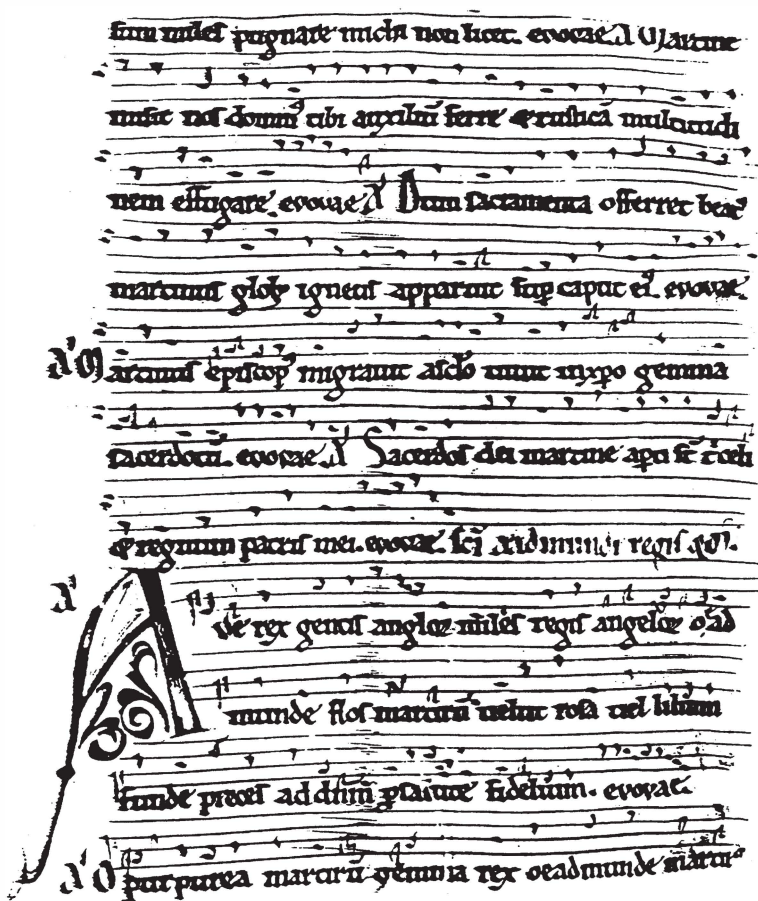 sum miles pugnare michi non licet. evovae. A Martine
misit nos dominꝰ tibi auxiliū ferre ⁊ rusticā multitudi
nem effugare. evovae A Dum sacramenta offerret beatꝰ
martinus globꝰ igneus apparuit sup caput eiꝰ. evovae.
A Martinus episcopꝰ migravit a sclo vivit in xpo gemma
sacerdotū. evovae A Sacerdos dei martine apti st t celi
⁊ regnum patris mei. evovae. sci ædmundi regis
A Ave rex gentis angloꝝ miles regis angeloꝝ o æd
munde flos martirū velut rosa vel lilium
funde preces ad dnm p salute fidelium. evovae.
A O purpurea martirū gemma rex o eadmunde martir